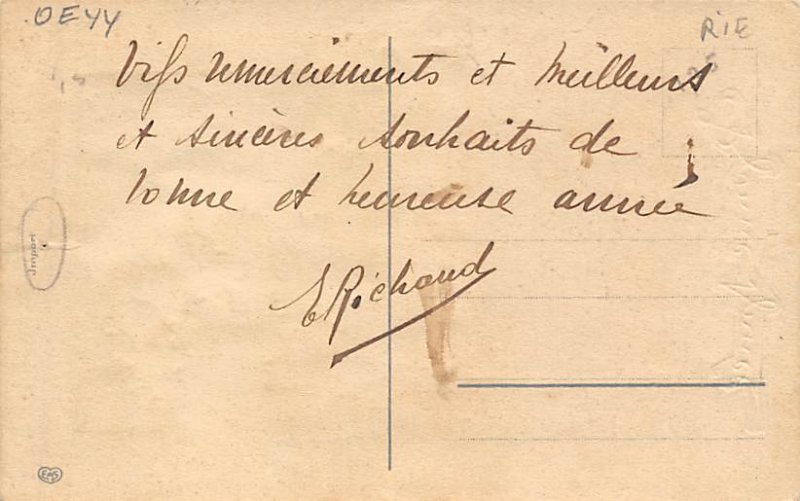 OEYY
RIE
Vifs remerciements et meilleurs
et sincères souhaits de
bonne et heureuse année
E Richaud
Import
EAS